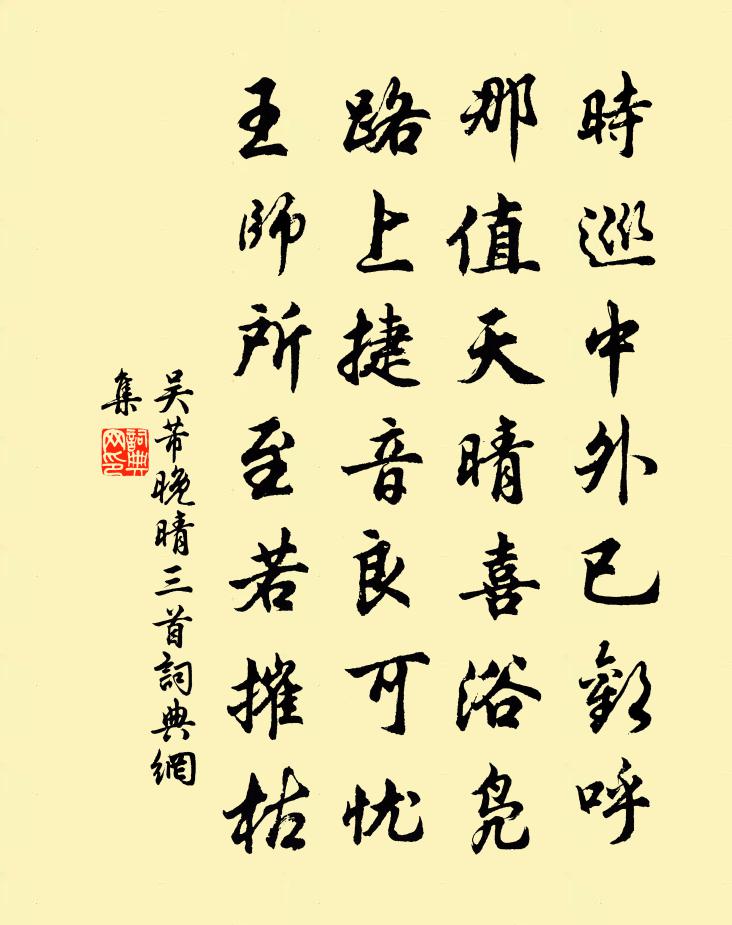 時巡中外已歡呼
那值天晴喜浴凫
路上捷音良可忧
王師所至若摧枯
吴芾晚晴三首詞典網
集
詞典網印